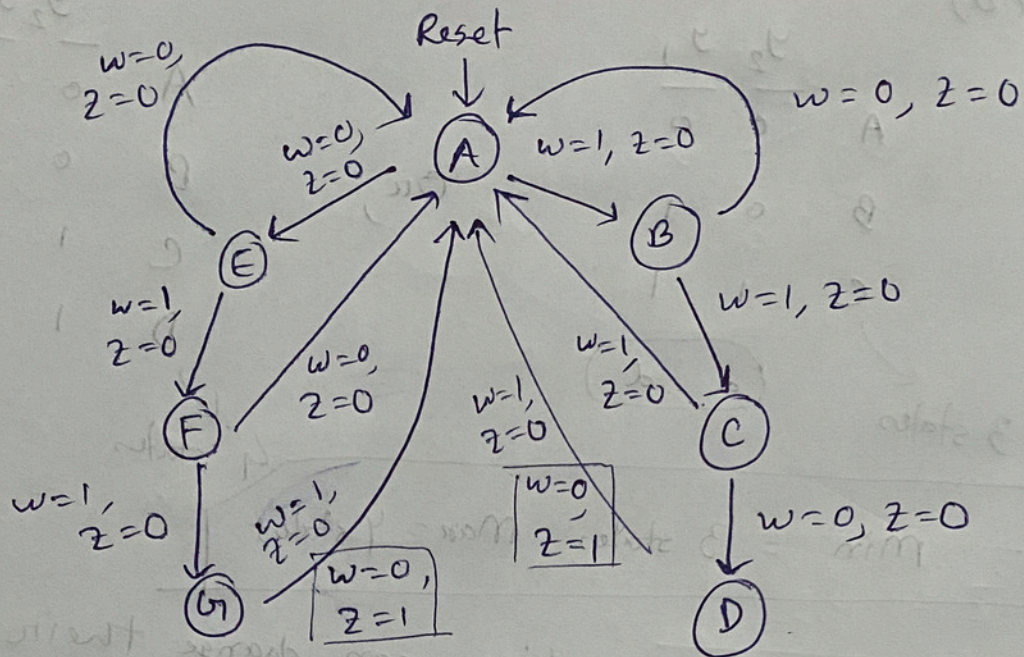 Reset
w=0,
z=0
w=0, z=0
w=0,
z=0
A
w=1, z=0
E
B
w=1,
z=0
w=1, z=0
w=0,
z=0
w=1,
z=0
w=1,
z=0
F
C
w=1,
z=0
w=1,
z=0
w=0,
z=1
w=0, z=0
G
w=0,
z=1
D